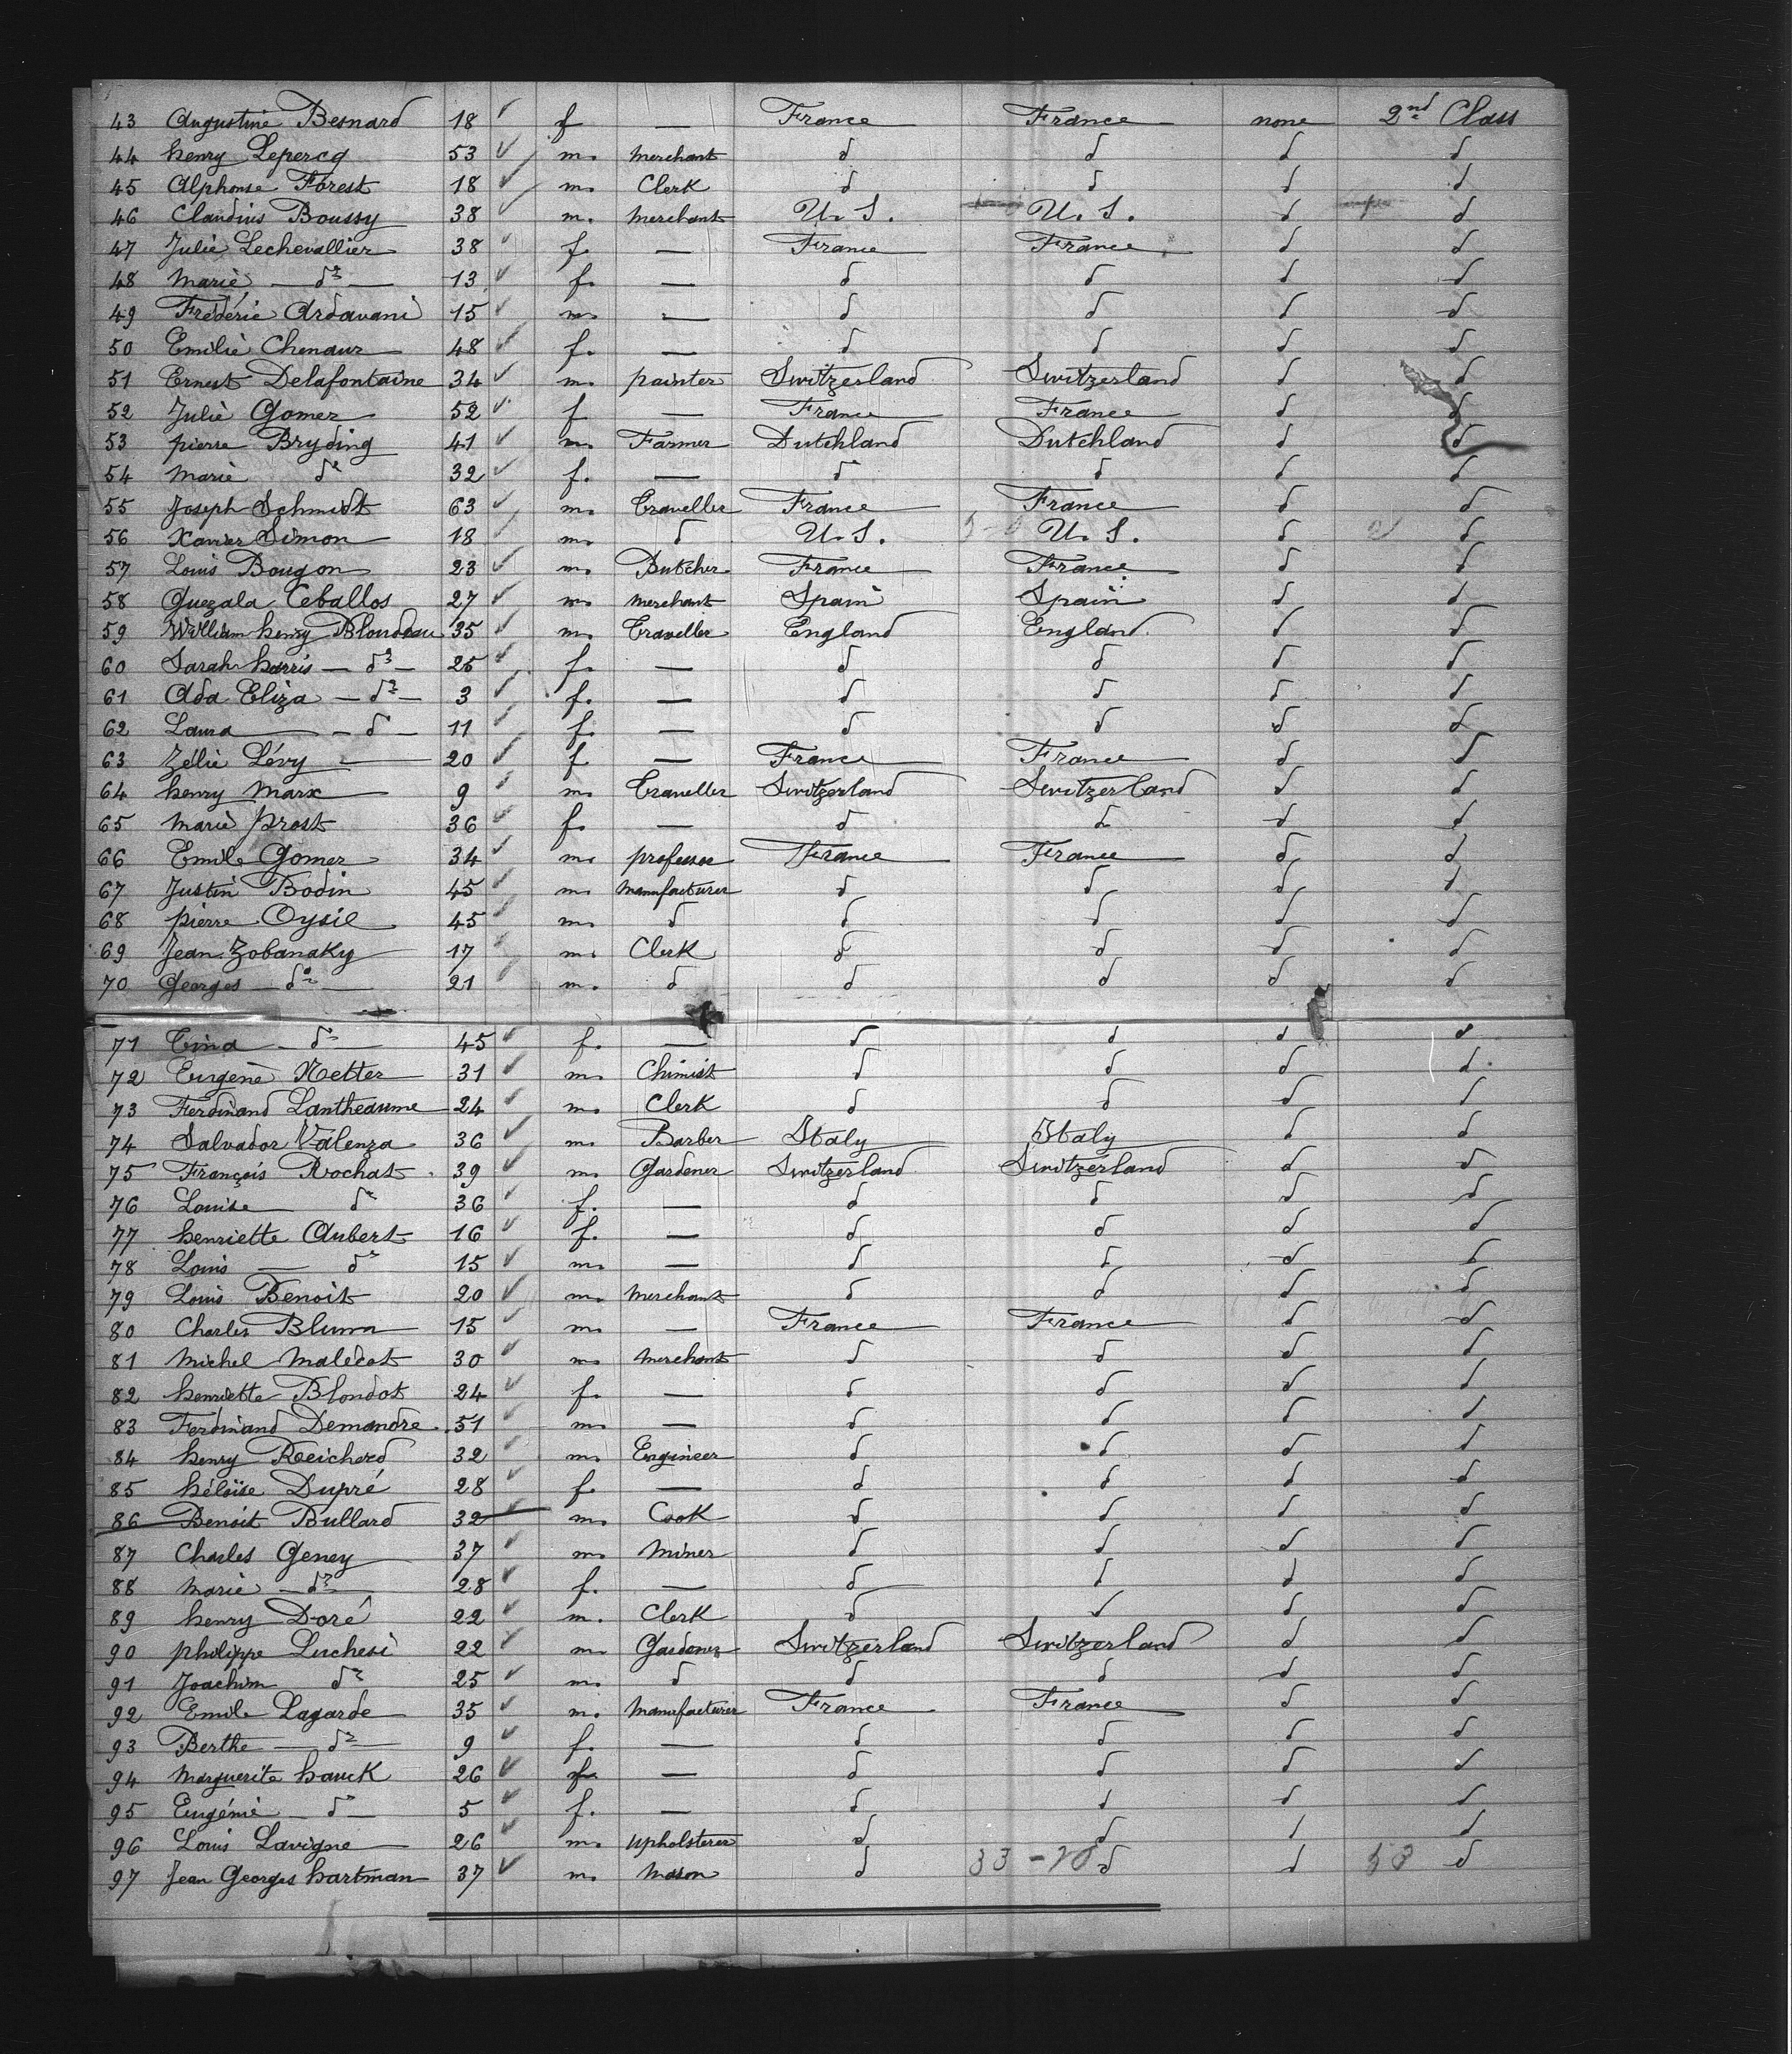 43 Augustine Besnard 18 f — France France none 2nd Class
44 henry Lepercq 53 m. merchant d d d d
45 Alphonse Forest 18 m. Clerk d d d d
46 Claudius Boussy 38 m. merchant U. S. U. S. d d
47 Julie Lechevallier 38 f. — France France d d
48 Marie — do — 13 f. — d d d d
49 Frédéric Ardavani 15 m. — d d d d
50 Emilie Chenaux 48 f. — d d d d
51 Ernest Delafontaine 34 m. painter Switzerland Switzerland d d
52 Julie Gomez 52 f — France France d d
53 pierre Bryding 41 m. Farmer Dutchland Dutchland d d
54 Marie do 32 f. — d d d d
55 Joseph Schmidt 63 m. Traveller France France d d
56 Xavier Simon 18 m. d U. S. U. S. d d
57 Louis Bougon 23 m. Butcher France France d d
58 Quezala Ceballos 27 m. merchant Spain Spain d d
59 William henry Blondeau 35 m. Traveller England England d d
60 Sarah harris — do — 25 f. — d d d d
61 Ada Eliza — do — 3 f. — d d d d
62 Laura — do — 11 f. — d d d d
63 Zélie Lévy 20 f. — France France d d
64 henry Marx 9 m. Traveller Switzerland Switzerland d d
65 Marie Prost 36 f. — d d d d
66 Emile Gomez 34 m. professor France France d d
67 Justin Bodin 45 m. manufacturer d d d d
68 pierre Oysil 45 m. d d d d d
69 Jean Zobanaky 17 m. Clerk d d d d
70 Georges — do — 21 m. d d d d d
71 Tina — do — 45 f. — d d d d
72 Eugène Netter 31 m. Chimist d d d d
73 Ferdinand Lantheaume 24 m. Clerk d d d d
74 Salvador Valenza 36 m. Barber Italy Italy d d
75 François Rochat 39 m. Gardener Switzerland Switzerland d d
76 Louise do 36 f. — d d d d
77 henriette Aubert 16 f. — d d d d
78 Louis — do 15 m. — d d d d
79 Louis Benoit 20 m. merchant d d d d
80 Charles Blum 15 m. — France France d d
81 Michel Maledot 30 m. merchant d d d d
82 henriette Blondot 24 f. — d d d d
83 Ferdinand Demandre 51 m. — d d d d
84 henry Reicherd 32 m. Engineer d d d d
85 héloïse Dupré 28 f. — d d d d
86 Benoit Bullard 32 m. Cook d d d d
87 Charles Geney 37 m. Miner d d d d
88 Marie — do — 28 f. — d d d d
89 henry Doré 22 m. Clerk d d d d
90 philippe Luchesi 22 m. Gardener Switzerland Switzerland d d
91 Joachim do 25 m. d d d d d
92 Emile Lagarde 35 m. manufacturer France France d d
93 Berthe — do — 9 f. — d d d d
94 Marguerite hauck 26 f. — d d d d
95 Eugénie — do — 5 f. — d d d d
96 Louis Lavigne 26 m. upholsterer d d d d
97 Jean Georges hartman 37 m. Mason d 33 - 20 d d 53 d